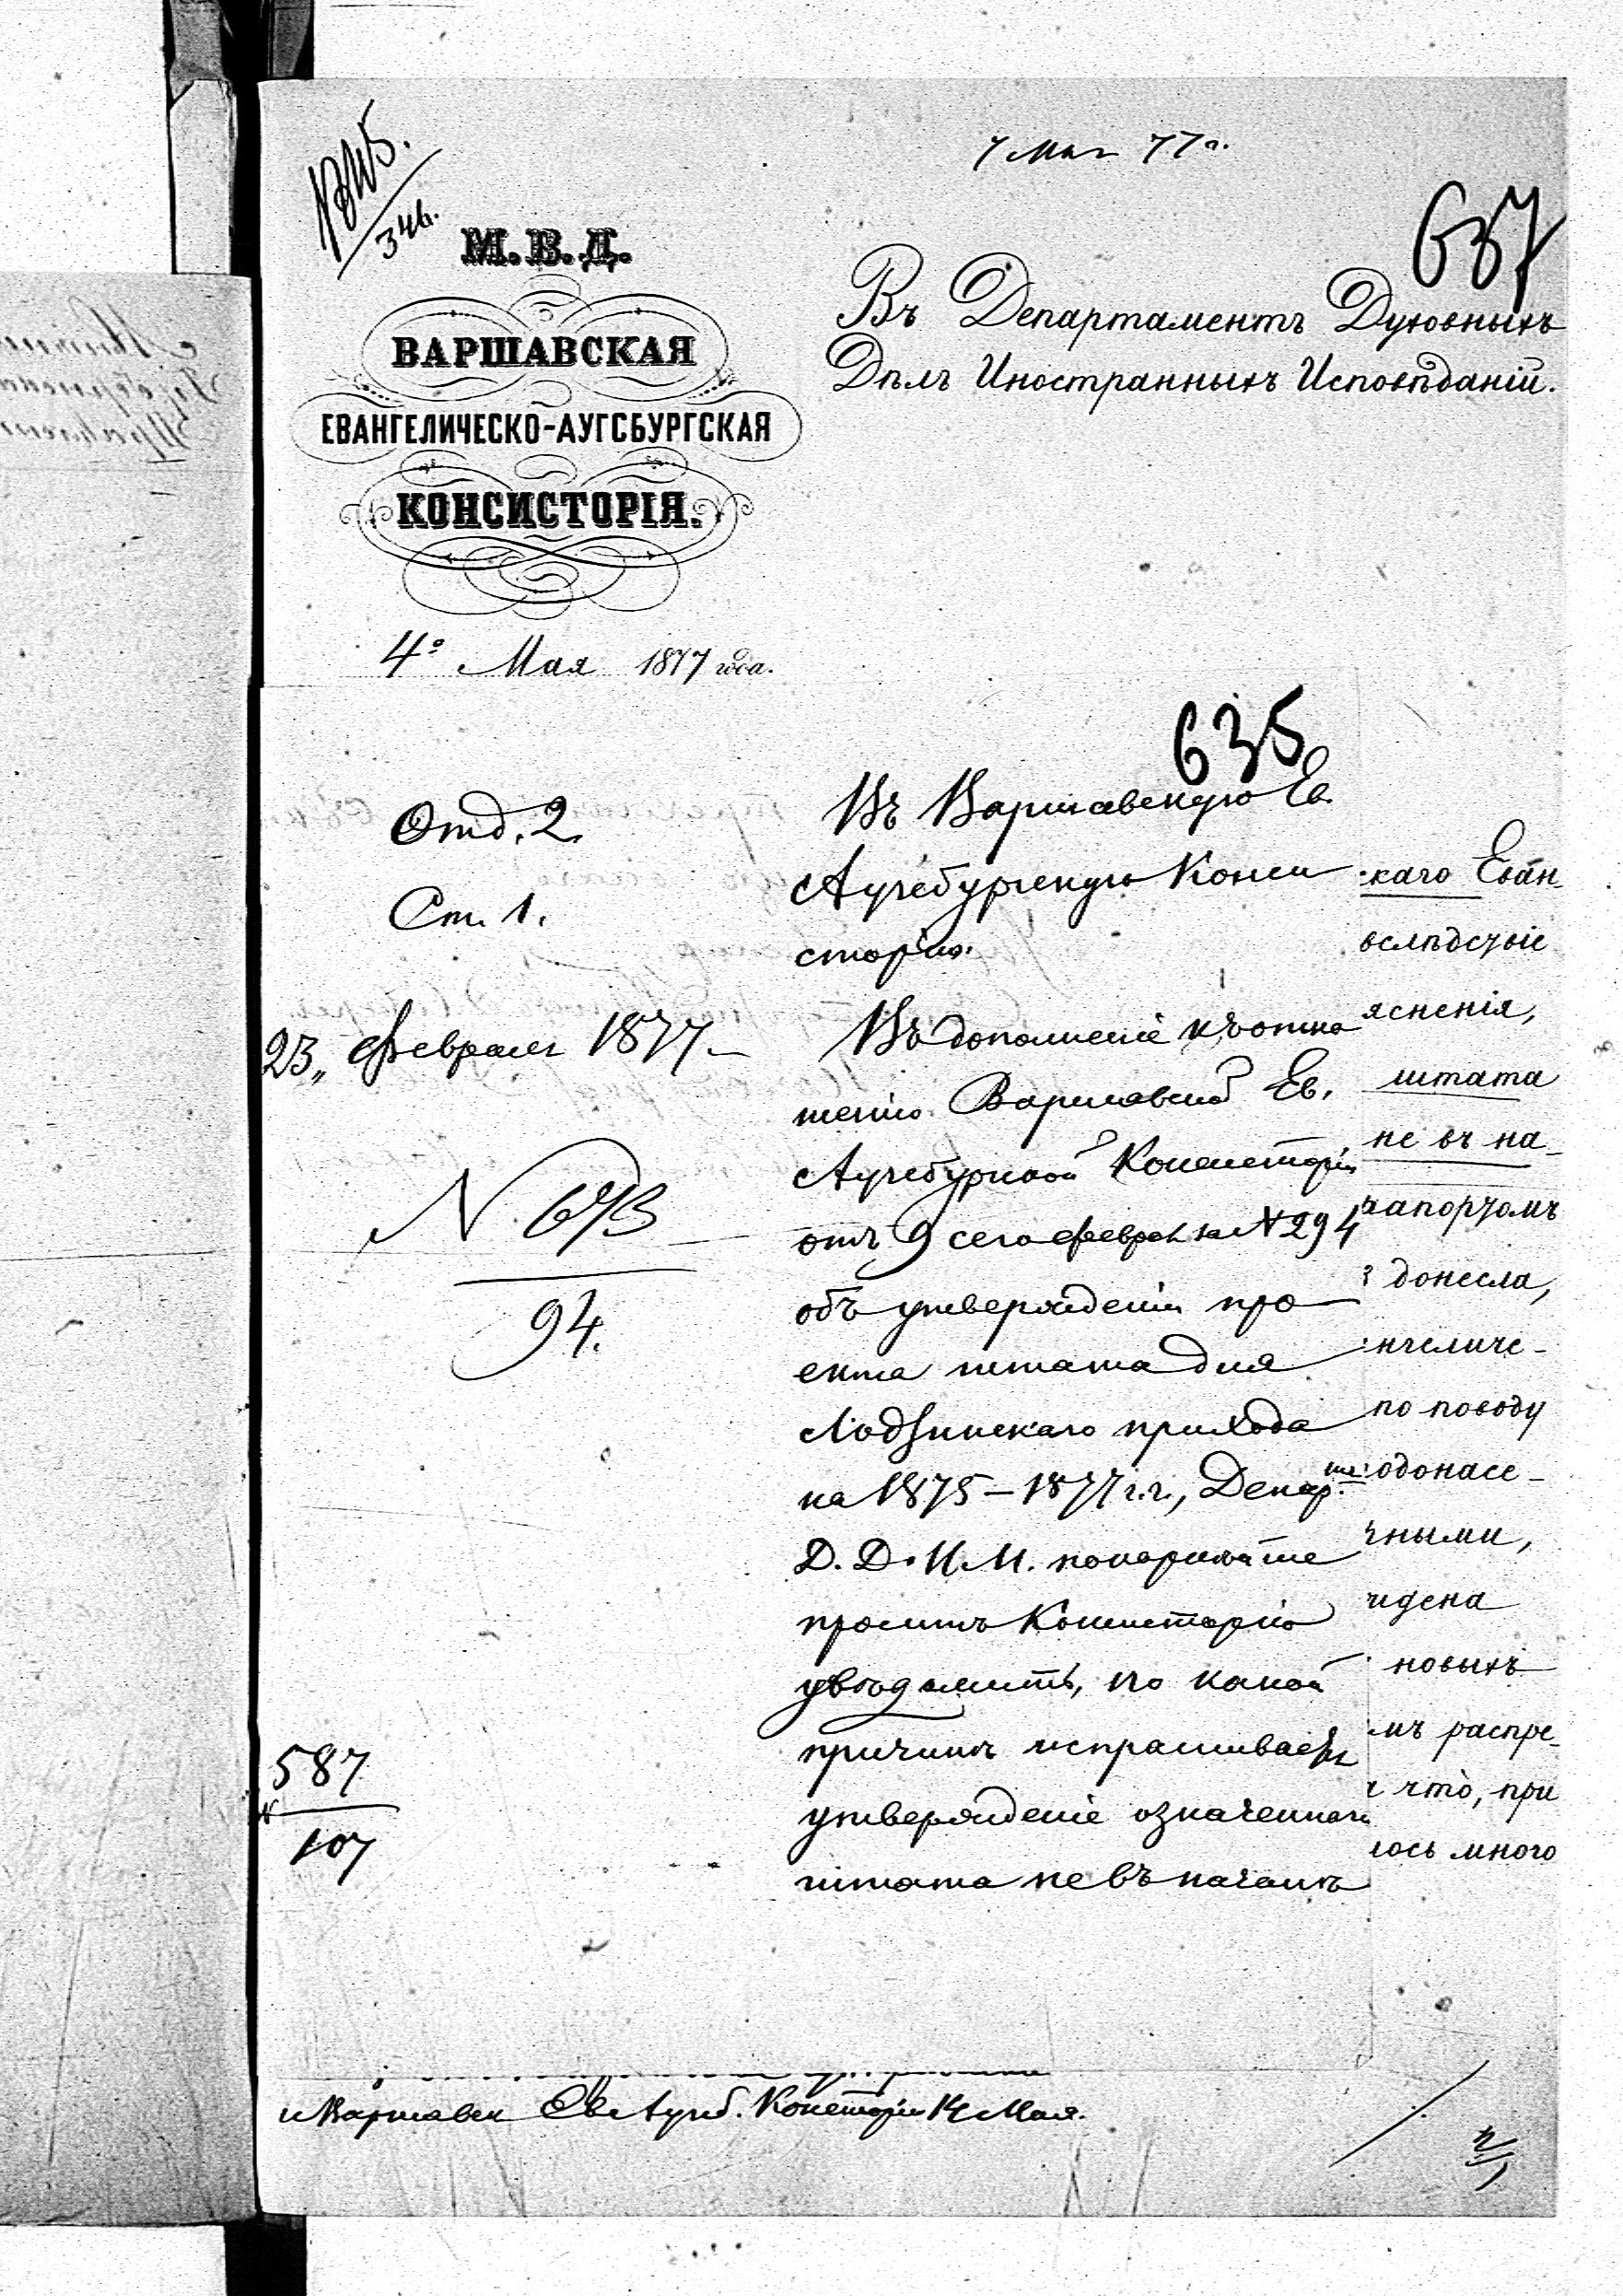 7 Мая 77 г.
637
М. В. Д.
ВАРШАВСКАЯ
ЕВАНГЕЛИЧЕСКО-АУГСБУРГСКАЯ
КОНСИСТОРІЯ.
4º Мая 1877 года.
Въ Департаментъ Духовныхъ
Дѣлъ Иностранныхъ Исповѣданій.
635
Отд. 2.
Ст. 1.
23„ февраля 1877
N. 673
94.
587
107
Въ Варшавскую Ев.
Аугсбургскую Конси
сторію.
Въ дополненіе къ отно
шенію Варшавской Ев.
Аугсбургской Консисторіи
отъ 9 сего февр. за N 294
объ утвержденіи про
екта штата для
Лодзинскаго прихода
на 1875–1877 г.г., Депар.тъ
Д. Д. И. И. покорнѣйше
проситъ Консисторію
увѣдомить, по какой
причинѣ испрашивается
утвержденіе означеннаго
штата не въ началѣ
каго Еван
вслѣдствіе
ясненія,
штата
не въ на-
рапортомъ
донесла,
нгеличе-
по поводу
одонасе-
ными,
идена
новыхъ
мъ распре-
что, при
лось много
и Варшавск Ев Аугсб. Консисторіи 14 Мая.